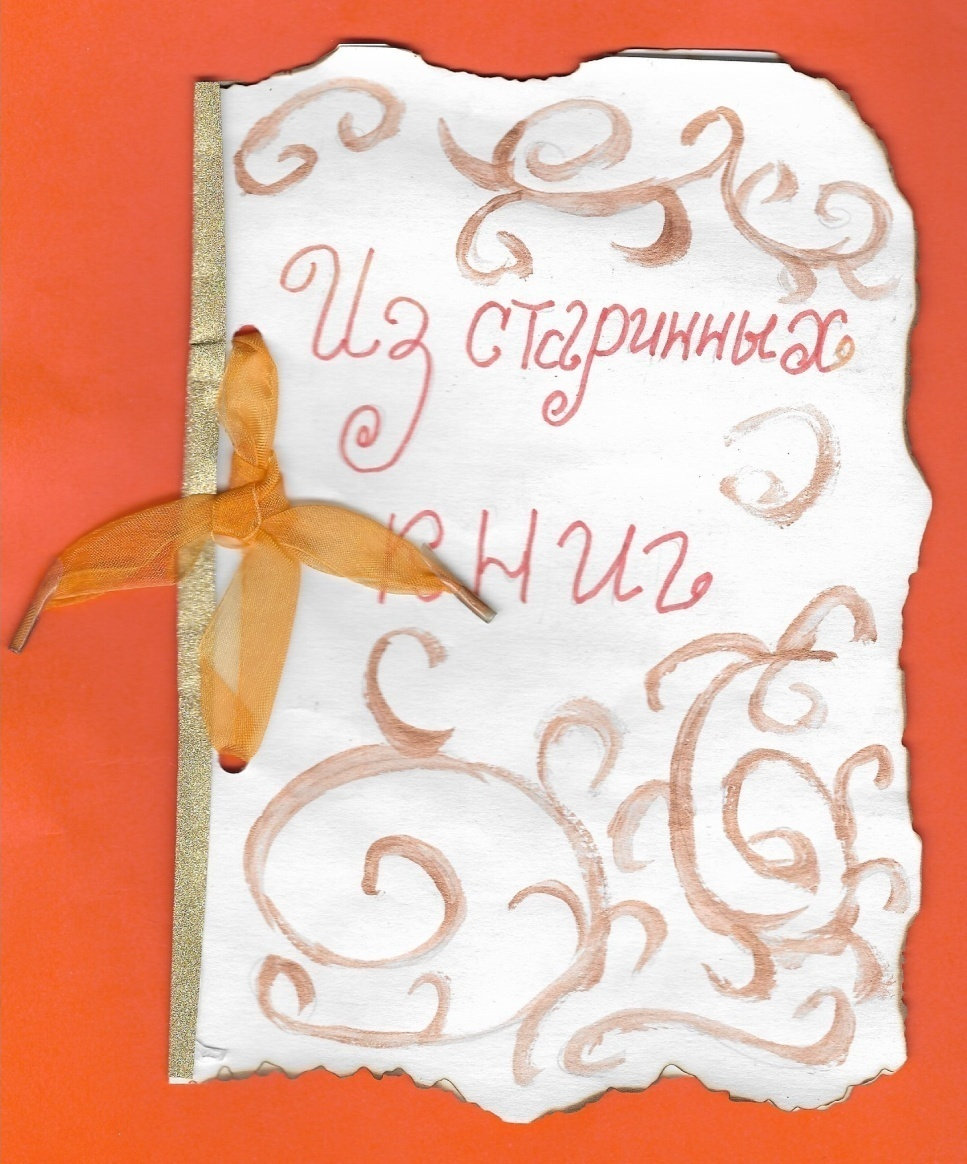 Из старинных
книг